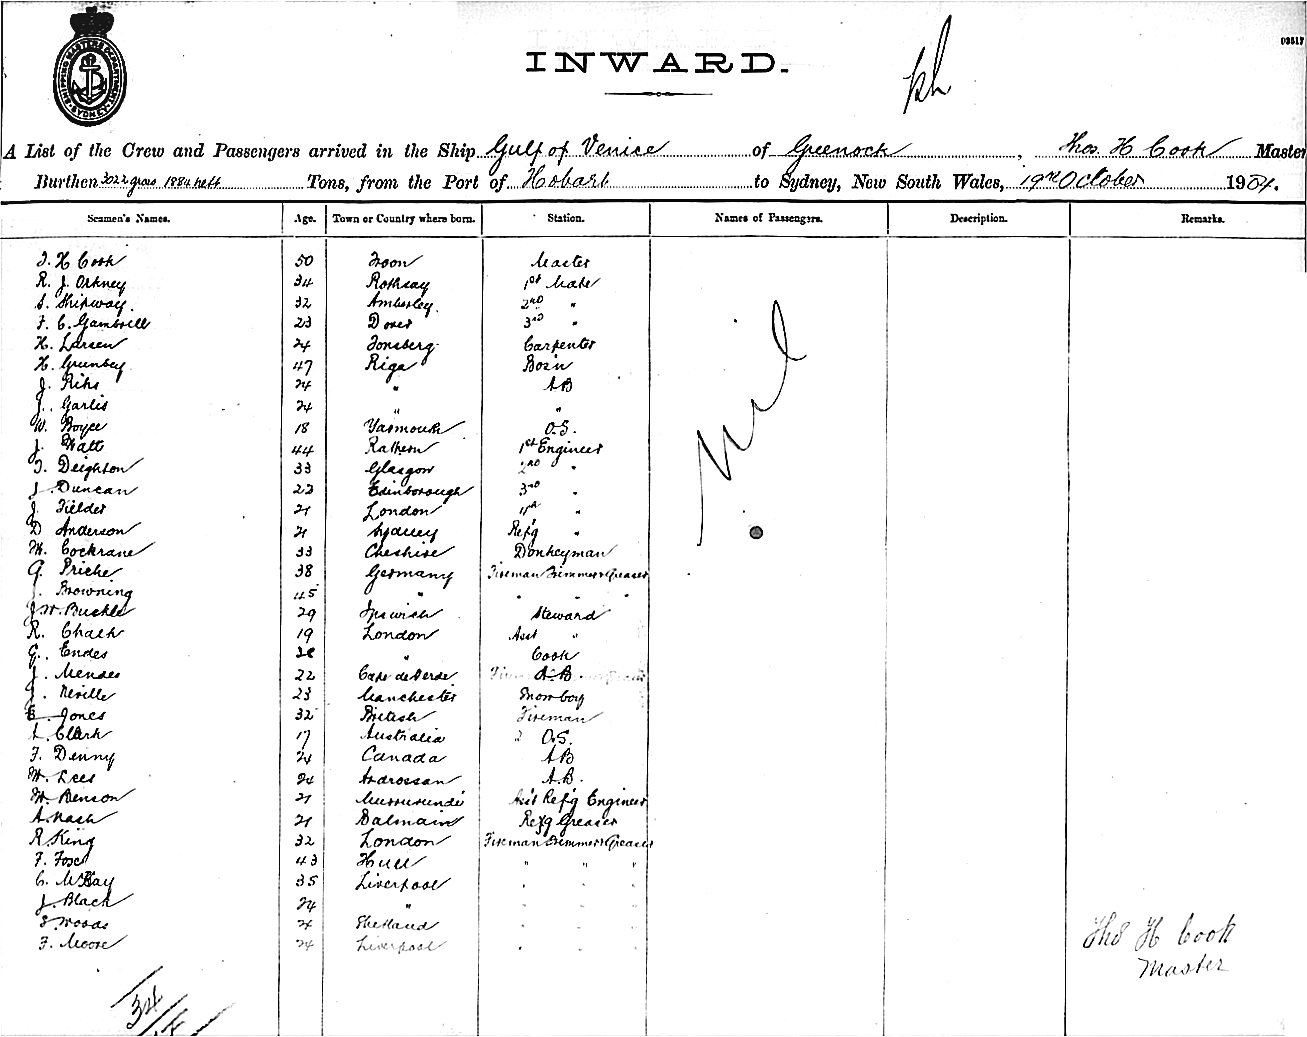 SHIPPING MASTERS DEPARTMENT SYDNEY
03517
INWARD.
A List of the Crew and Passengers arrived in the Ship Gulf of Venice of Greenock, Thos. H Cook Master
Burthen 3022 gross 1884 nett Tons, from the Port of Hobart to Sydney, New South Wales, 19th October 1904.
Seamen's Names. Age. Town or Country where born. Station. Names of Passengers. Description. Remarks.
T. H Cook 50 Troon Master
R. J. Orkney 34 Rothsay 1st Mate
S. Shipway 32 Amberley 2nd "
F. C. Gambrill 23 Dover 3rd "
H. Larsen 24 Tonsberg Carpenter
H. Grunbey 47 Riga Bosn
J. Rihs 24 " AB
J. Garlis 24 " "
W. Boyce 18 Yarmouth O.S.
J. Watt 44 1st Engineer
T. Deighton 33 Glasgow 2nd "
J. Duncan 22 Edinborough 3rd "
J. Fielder 21 London 4th "
D Anderson 21 Sydney Refg "
W. Cockrane 33 Cheshire Donkeyman
G. Priche 38 Germany Fireman Trimmer & Greaser
J. Browning 45 " " " "
J. W. Buckle 29 Ipswich Steward
R. Chalk 19 London Asst "
G. Endes " Cook
J. Mendes 22 Cape de Verde A.B.
J. Neville 23 Manchester Messboy
E. Jones 32 British Fireman
L. Clark 17 Australia O.S.
F. Denny 24 Canada AB
W. Lees 24 Ardrossan A.B.
W. Benson 21 Murrurundi Ass't Ref'g Engineer
A. Nash 21 Balmain Refg Greaser
R King 32 London Fireman Trimmer & Greaser
F. Foss 43 Hull " " "
C. McKay 35 Liverpool " " "
J. Black 24 " " " "
S Woods 21 Shetland " " "
F. Moore 24 Liverpool " " "
Nil
Thos H Cook
Master
34